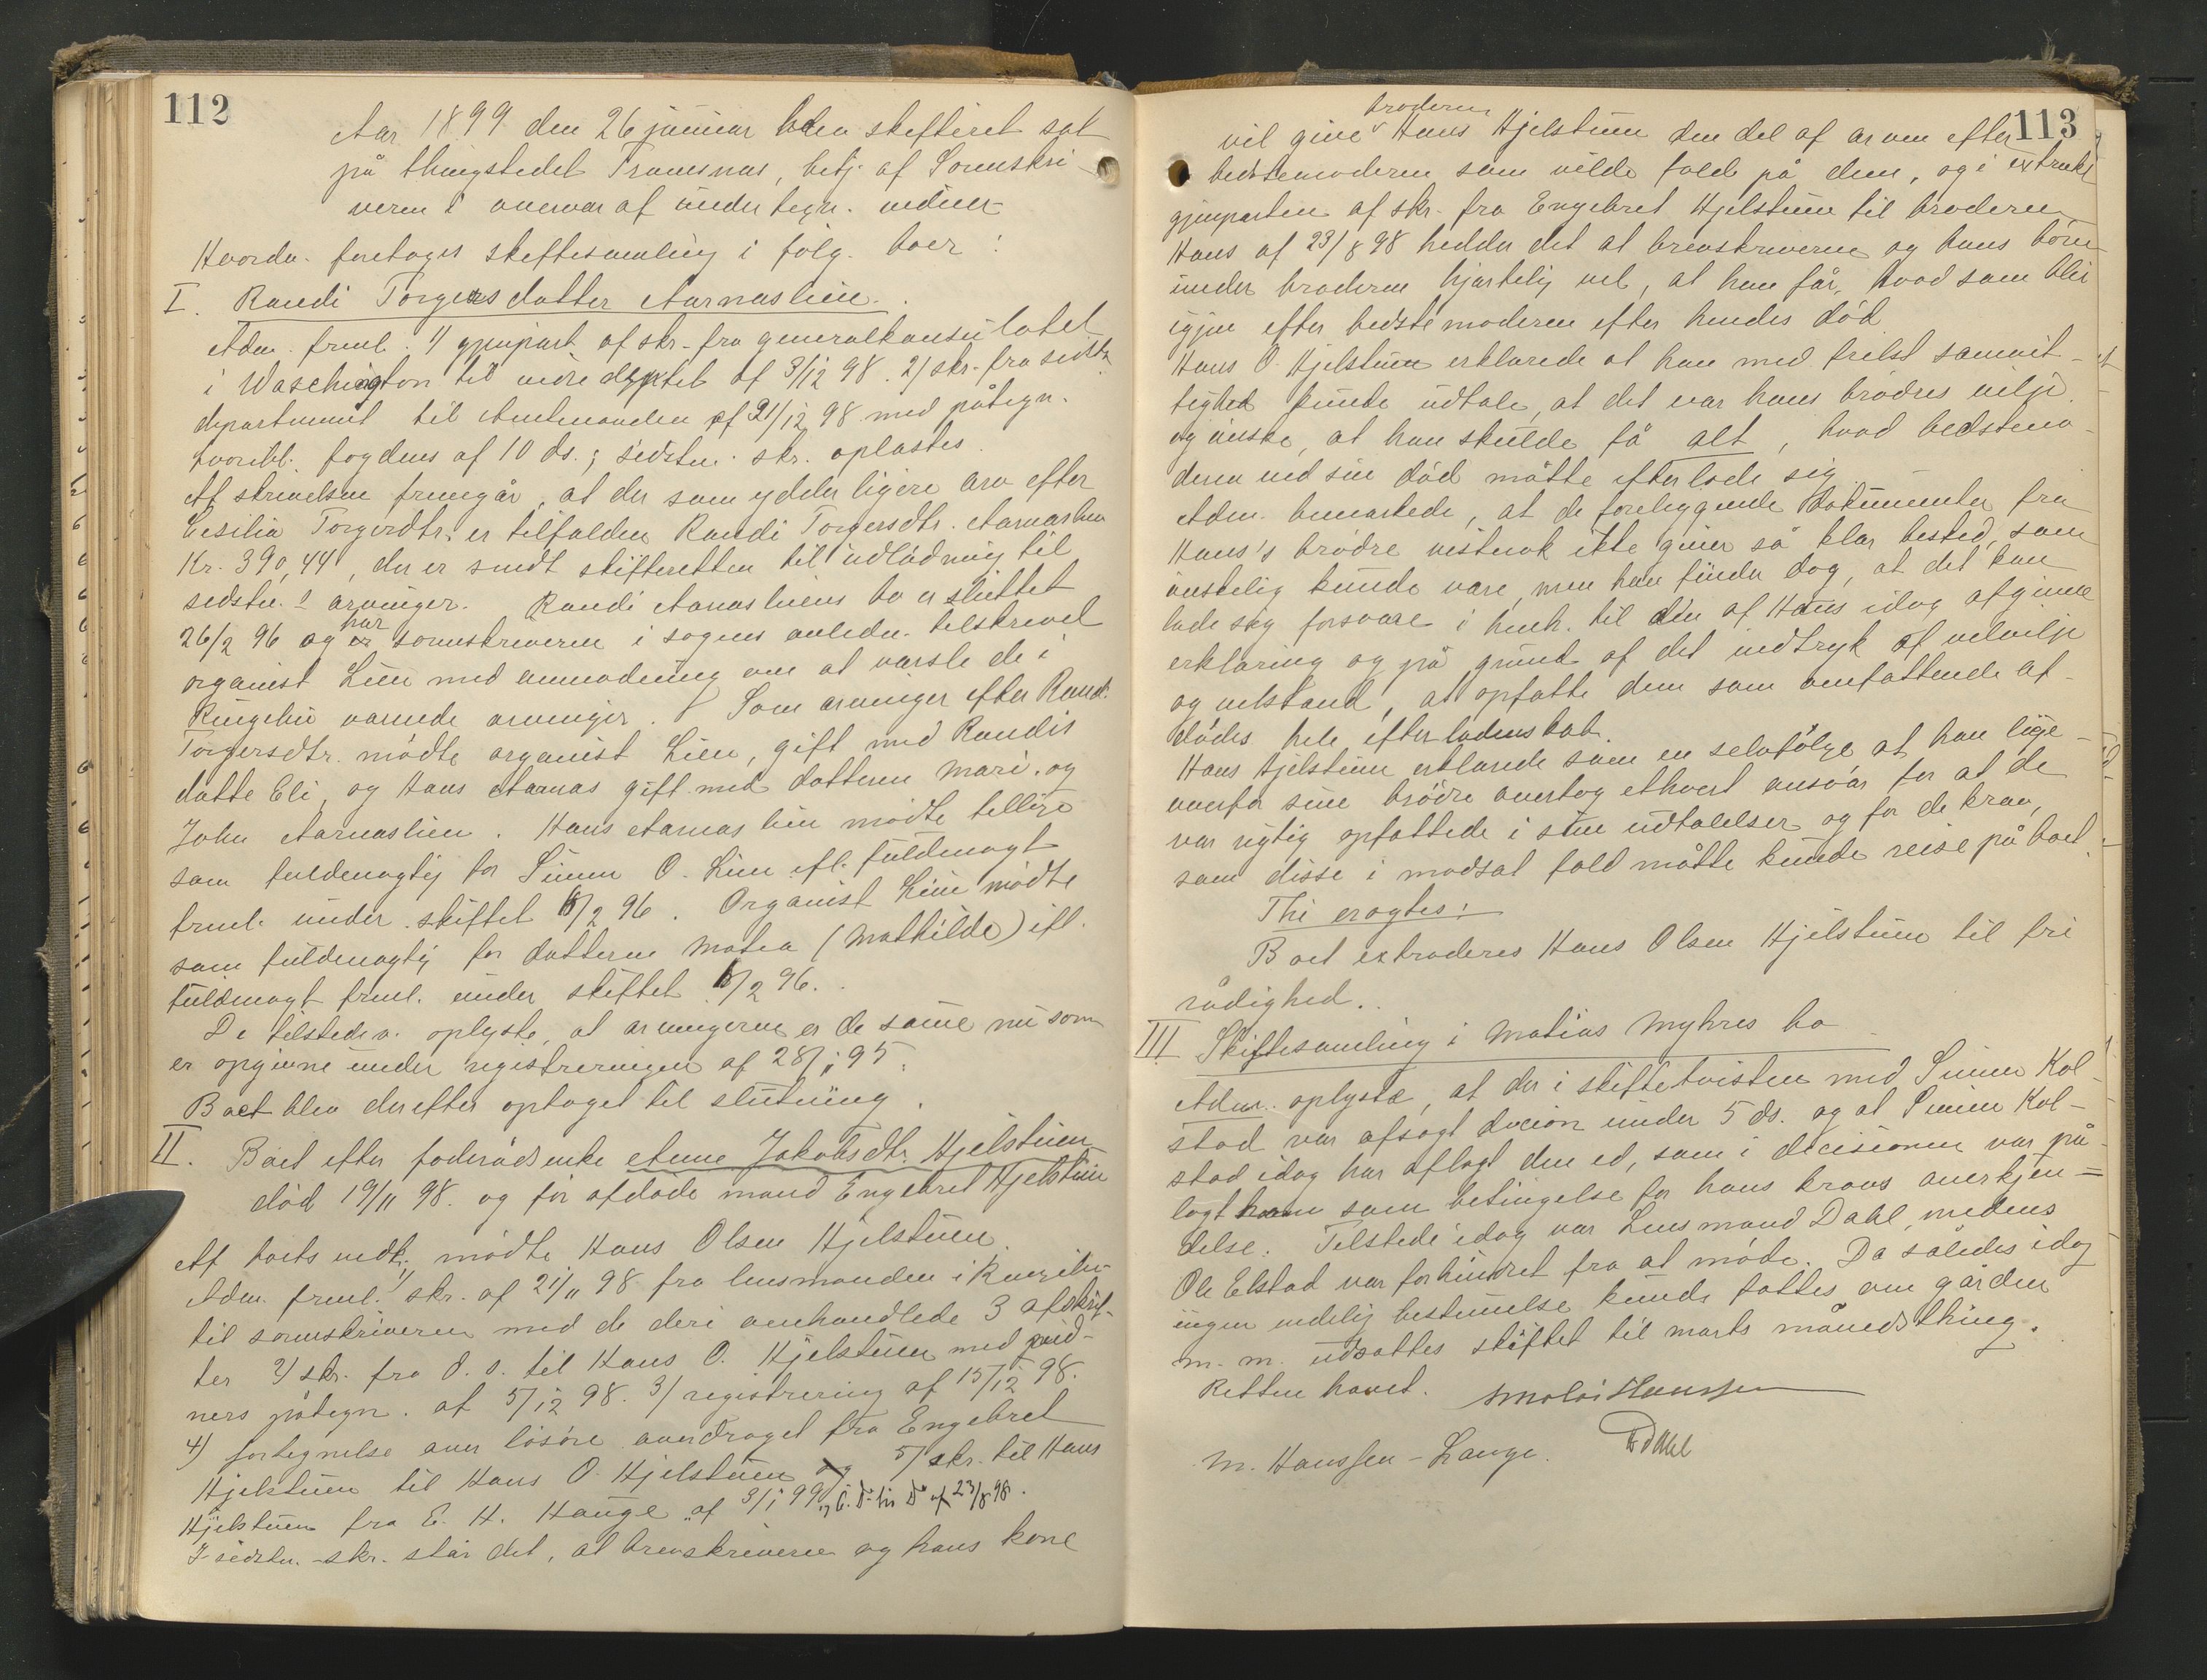 112
Aar 1899 den 26 januar blev skifteret sat
på thingstedet Tromsnæs, betj. af Sorenskri-
veren i overvær af undertegn. vidner
Hvorda. foretoges skiftesamling i følg. boer:
I. Randi Torgersdatter Aarnæslien.
Adm. freml. 1/ gjenpart af skr. fra generalkonsulatet
i Waschington til indredeptet af 3/12 98. 2/ skr. fra sidstn.
departement til Amtmanden af 21/12 98 med påtegn.
hvoribl. fogdens af 10 ds.; sidstn. skr. oplæstes.
Af skrivelsen fremgår, at der som yderligere arv efter
Cesilia Torgersdtr. er tilfalden Randi Torgersdtr. Aarnæslien
Kr. 390,44, der er sendt skifteretten til udlodning til
sidstn.s arvinger. Randi Aarnæsliens bo er sluttet
26/2 96 og har sorenskriveren i sagens anledn. tilskrevet
organist Lien med anmodning om at varsle de i
Ringebu værende arvinger. Som arvinger efter Randi
Torgersdtr. mødte organist Lien, gift med Randis
datte Eli, og Hans Aarnæs gift med datteren Mari. og
John Aarnæslien. Hans Aarnæslien mødte tillige
som fuldmægtig for Simen O. Lien ifl. fuldmagt
freml. under skiftet 6/2 96. Organist Lien mødte
som fuldmægtig for datteren Matea (Mathilde) ifl.
fuldmagt freml. under skiftet 6/2 96.
De tilstedev. oplyste, at arvingerne er de samme nu som
er opgivne under registreringen af 28/1 95.
Boet blev derefter optaget til slutning.
II. Boet efter føderådsenke Anne Jakobsdtr. Hjelstuen
død 19/11 98. og før afdøde mand Engebret Hjelstuen
Af boets vedk. mødte Hans Olsen Hjelstuen.
Adm. freml. 1/ skr. af 21/11 98 fra lensmanden i Ringebu
til sorenskriveren med de deri omhandlede 3 afskrif-
ter 2/ skr. fra d. s. til Hans O. Hjelstuen med vid-
ners påtegn. af 5/12 98. 3/ registrering af 15/12 98.
4) fortegnelse over løsøre overdraget fra Engebret
Hjelstuen til Hans O. Hjelstuen og 5/ skr. til Hans
Hjelstuen fra E. H. Hauge af 3/1 99 og 6. Do til Do af 23/8 98.
I sidstn. skr. står det, at brevskriveren og hans kone
113
vil give broderen Hans Hjelstuen den del af arven efter
bedstemoderen som vilde fald på dem, og i extrakt
gjenparten af skr. fra Engebret Hjelstuen til broderen
Hans af 23/8 98 hedder det at brevskriveren og hans børn
under broderen hjertelig vel, at han får, hvad som blir
igjen efter bedstemoderen efter hendes død.
Hans O. Hjelstuen erklærede at han med frelst samvit-
tighed kunde udtale, at det var hans brødres vilje
og ønske, at han skulde få alt, hvad bedstemo-
deren ved sin død måtte efterlade sig.
Adm. bemærkede, at de foreliggende dokumenter fra
Hans's brødre vistnok ikke giver så klar besked, som
ønskelig kunde være, men han finder dog, at det kan
lade sig forsvare i henh. til den af Hans idag afgivne
erklæring og på grund af det indtryk af velvilje
og velstand, at opfatte dem som omfattende af-
dødes hele efterladenskab.
Hans Hjelstuen erklærede som en selvfølge at han lige-
overfor sine brødre overtog ethvert ansvar for at de
var rigtig opfattede i sine udtalelser og for de krav,
som disse i modsat fald måtte kunde reise på boet.
Thi eragtes:
Boet extraderes Hans Olsen Hjelstuen til fri
rådighed.
III Skiftesamling i Matias Myhres bo
Adm. oplyste, at der i skiftetvisten med Simen Kol-
stad var afsagt decision under 5 ds. og at Simen Kol-
stad idag har aflagt den ed, som i decisionen var på-
lagt ham som betingelse for hans kravs anerkjen-
delse. Tilstede idag var Lensmand Dahl, medens
Ole Elstad var forhindret fra at møde. Da således idag
ingen endelig bestemelse kunde fattes om gården
m. m. udsattes skiftet til marts månedsthing.
Retten hævet. Smoløi Hanssen
M. Hanssen-Lange. Dahl